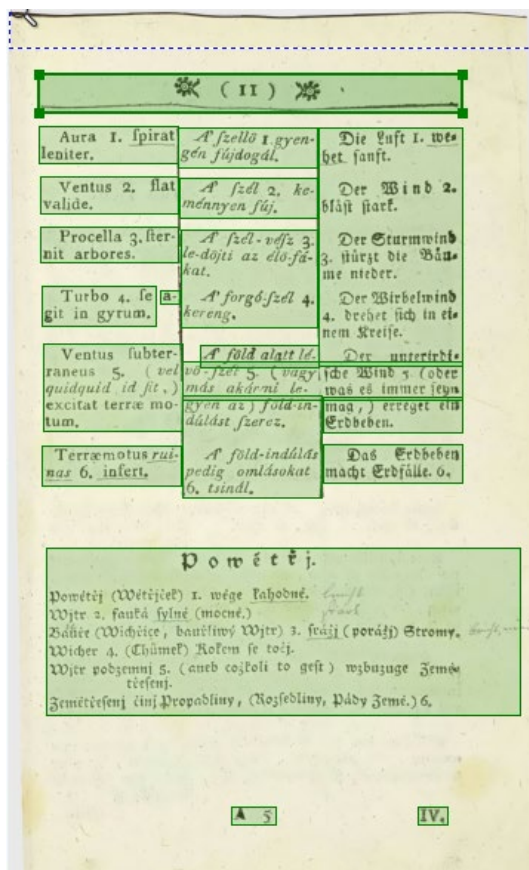 ( 11 )
Aura 1. ſpirat
leniter.
Ventus 2. flat
valide.
Procella 3. ſter-
nit arbores.
Turbo 4. ſe a-
git in gyrum.
Ventus ſubter-
raneus 5. (vel
quidquid id ſit,)
excitat terræ mo-
tum.
Terræmotus rui-
nas 6. infert.
A' ſzellő 1. gyen-
gén fújdogál.
A' ſzél 2. ke-
ménnyen fúj.
A' ſzél-véſz 3.
le-döjti az élö-fá-
kat.
A' forgó-ſzél 4.
kereng.
A' föld alatt lé-
vö-ſzél 5. (vagy
más akármi le-
gyen az) föld-in-
dúláſt ſzerez.
A' föld-indúlás
pedig omlásokat
6. tsinál.
Die Luft 1. we-
het ſanft.
Der Wind 2.
bläſt ſtark.
Der Sturmwind
3. ſtürzt die Bäu-
me nieder.
Der Wirbelwind
4. drehet ſich in ei-
nem Kreiſe.
Der unterirdi-
ſche Wind 5. (oder
was es immer ſeyn
mag,) erreget ein
Erdbeben.
Das Erdbeben
macht Erdfälle. 6.
Powétřj.
Powétřj (Wětřjček) 1. wěge ľahodně.
Wjtr 2. fauká ſylně (mocně.)
Bauře (Wichřice, bauřliwý Wjtr) 3. ſrážj (porážj) Stromy.
Wicher 4. (Chůmel) Kolem ſe točj.
Wjtr podzemnj 5. (aneb cožkoli to geſt) wzbuzuge Země-
třeſenj.
Zemětřeſenj činj Propadliny, (Rozſedliny, Pády Země.) 6.
A 5
IV.